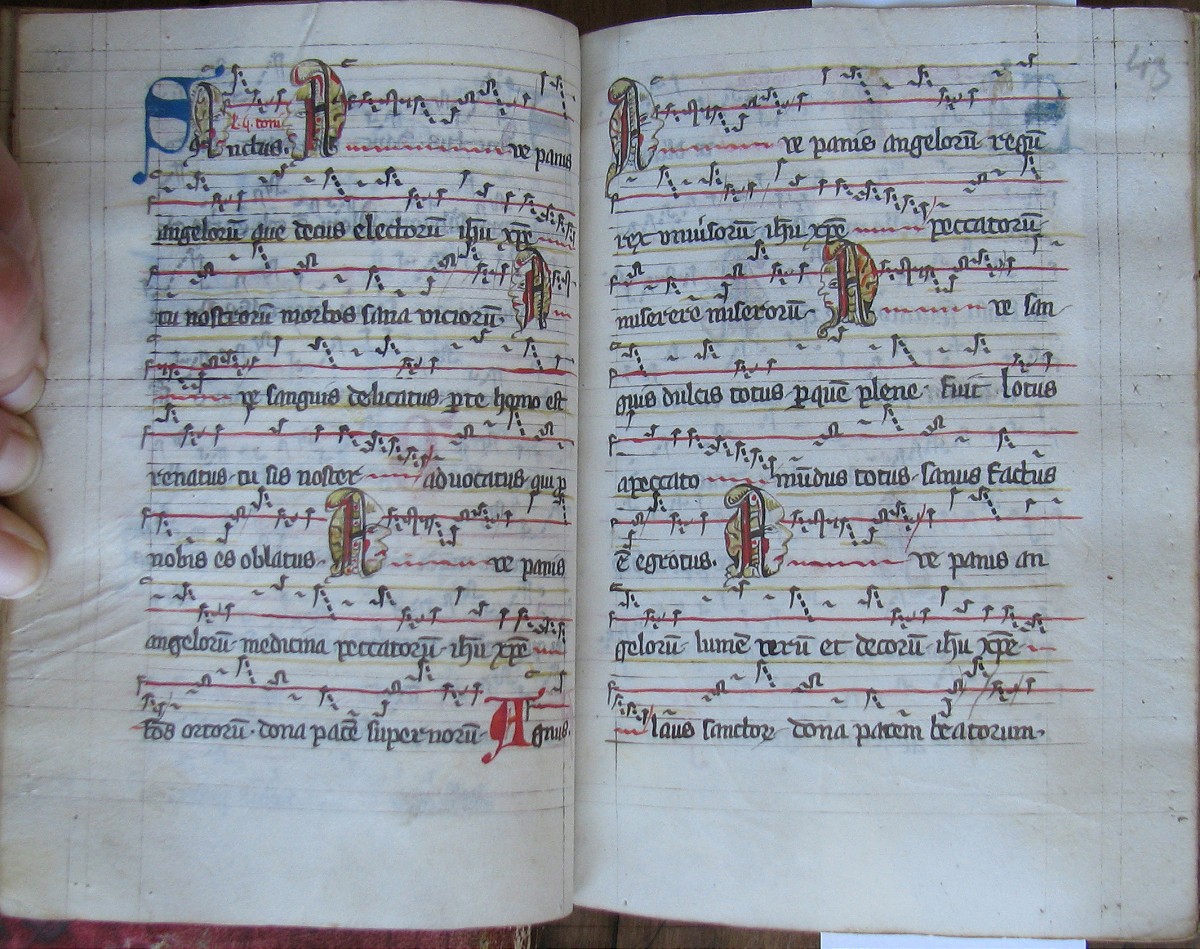 Sanctus. A ve panis
angelorū que decus electorū ihū xp̄e
tu nostrorū morbos sana viciorū. A
ve sanguis delicatus per te homo est
renatus tu sis noster advocatus qui p̱
nobis es oblatus. A ve panis
angelorū medicina peccatorū ihū xp̄e
ortorū dona pacē supernorū Agnus.
43
A ve panis angelorū regū
rex univisorū ihū xp̄e peccatorū
miserere miserorū A ve san
guis dulcis totus ꝑ quē plene fuit lotus
a peccato mūdus totus sanus factus
ē egrotus. A ve panis an
gelorū lumē verū et decorū ihū xp̄e
laus sanctoꝝ dona pacem beatorum.